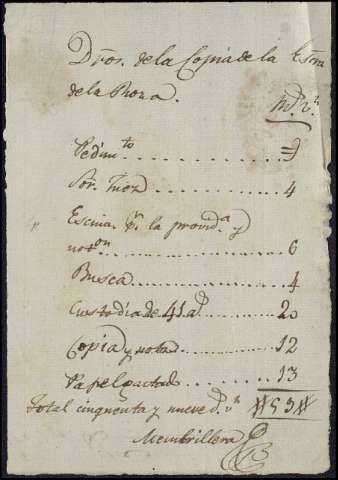 Dros. de la Copia de la Essra
de la Roza.
Rs. vn
Pedimto
Sor. Juez 4
Escma. pr. la provida. y
noton 6
Busca 4
Custodia de 41 as 20
Copia y nota 12
Papel gactado 13
Total cinquenta y nueve rs. vn #59#
Membrillera